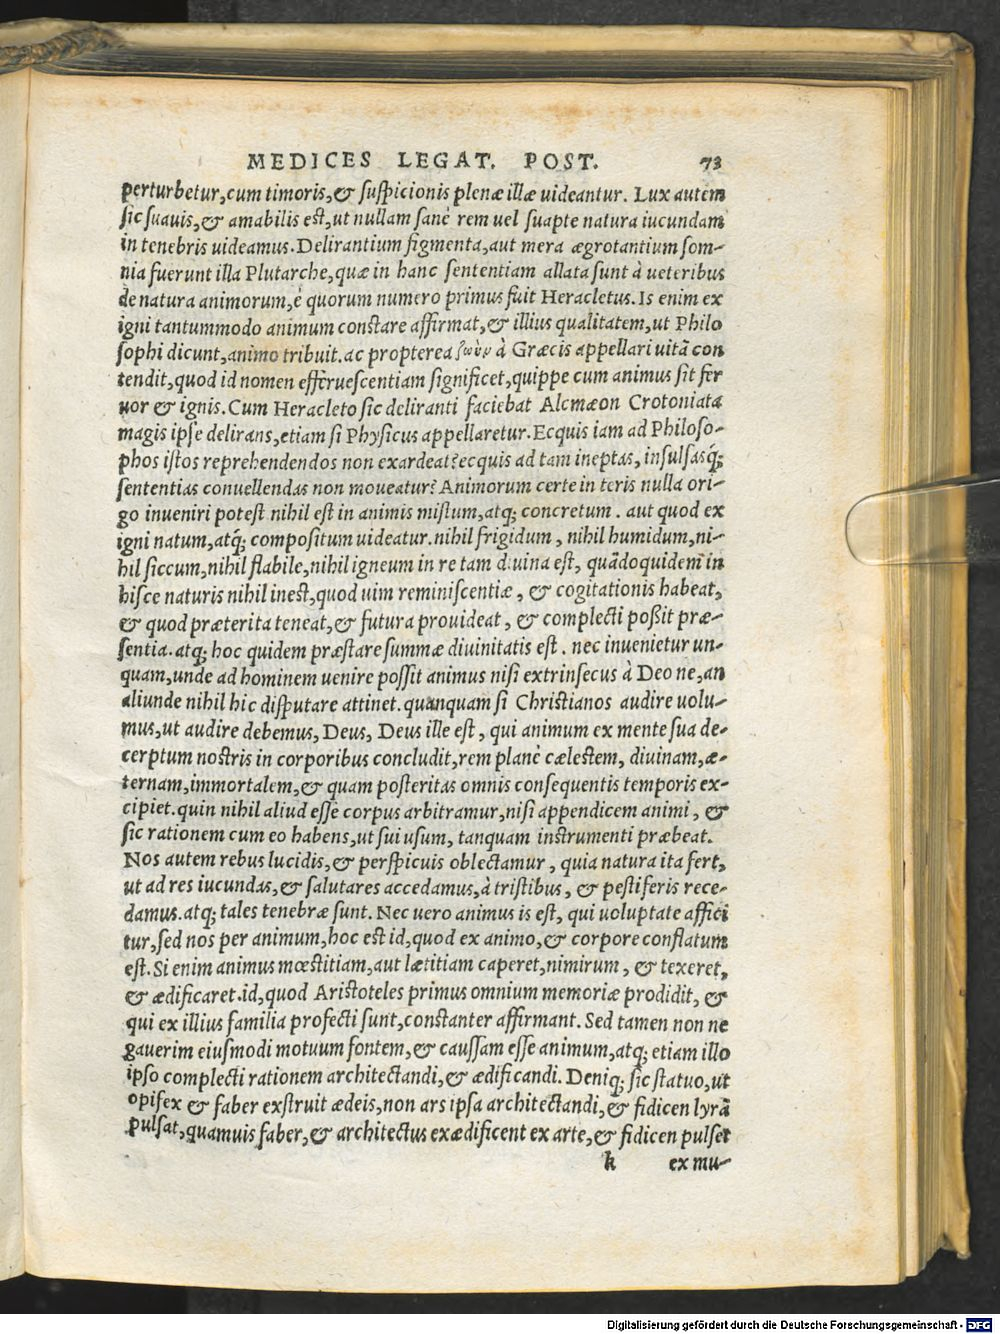 MEDICES LEGAT. POST. 73
perturbetur, cum timoris, & suspicionis plenæ illæ uideantur. Lux autem
sic suauis, & amabilis est, ut nullam sanè rem uel suapte natura iucundam
in tenebris uideamus. Delirantium figmenta, aut mera ægrotantium som-
nia fuerunt illa Plutarche, quæ in hanc sententiam allata sunt à ueteribus
de natura animorum, è quorum numero primus fuit Heracletus. Is enim ex
igni tantummodo animum constare affirmat, & illius qualitatem, ut Philo
sophi dicunt, animo tribuit. ac propterea à Græcis appellari uitā con
tendit, quod id nomen efferuescentiam significet, quippe cum animus sit fer
uor & ignis. Cum Heracleto sic deliranti faciebat Alcmæon Crotoniata
magis ipse delirans, etiam si Physicus appellaretur. Ecquis iam ad Philoso-
phos istos reprehendendos non exardeat? ecquis ad tam ineptas, insulsasq;
sententias conuellendas non moueatur? Animorum certe in teris nulla ori-
go inueniri potest nihil est in animis mistum, atq; concretum. aut quod ex
igni natum, atq; compositum uideatur. nihil frigidum, nihil humidum, ni-
hil siccum, nihil flabile, nihil igneum in re tam diuina est, quādoquidem in
hisce naturis nihil inest, quod uim reminiscentiæ, & cogitationis habeat,
& quod præterita teneat, & futura prouideat, & complecti poßit præ-
sentia. atq; hoc quidem præstare summæ diuinitatis est. nec inuenietur un-
quam, unde ad hominem uenire possit animus nisi extrinsecus à Deo ne, an
aliunde nihil hic disputare attinet. quanquam si Christianos audire uolu-
mus, ut audire debemus, Deus, Deus ille est, qui animum ex mente sua de-
cerptum nostris in corporibus concludit, rem planè cælestem, diuinam, æ-
ternam, immortalem, & quam posteritas omnis consequentis temporis ex-
cipiet. quin nihil aliud esse corpus arbitramur, nisi appendicem animi, &
sic rationem cum eo habens, ut sui usum, tanquam instrumenti præbeat.
Nos autem rebus lucidis, & perspicuis oblectamur, quia natura ita fert,
ut ad res iucundas, & salutares accedamus, à tristibus, & pestiferis rece-
damus. atq; tales tenebræ sunt. Nec uero animus is est, qui uoluptate affici
tur, sed nos per animum, hoc est id, quod ex animo, & corpore conflatum
est. Si enim animus mœstitiam, aut lætitiam caperet, nimirum, & texeret,
& ædificaret. id, quod Aristoteles primus omnium memoriæ prodidit, &
qui ex illius familia profecti sunt, constanter affirmant. Sed tamen non ne
gauerim eiusmodi motuum fontem, & caussam esse animum, atq; etiam illo
ipso complecti rationem architectandi, & ædificandi. Deniq; sic statuo, ut
opifex & faber exstruit ædeis, non ars ipsa architectandi, & fidicen lyrā
pulsat, quamuis faber, & architectus exædificent ex arte, & fidicen pulset
k ex mu-
Digitalisierung gefördert durch die Deutsche Forschungsgemeinschaft - DFG